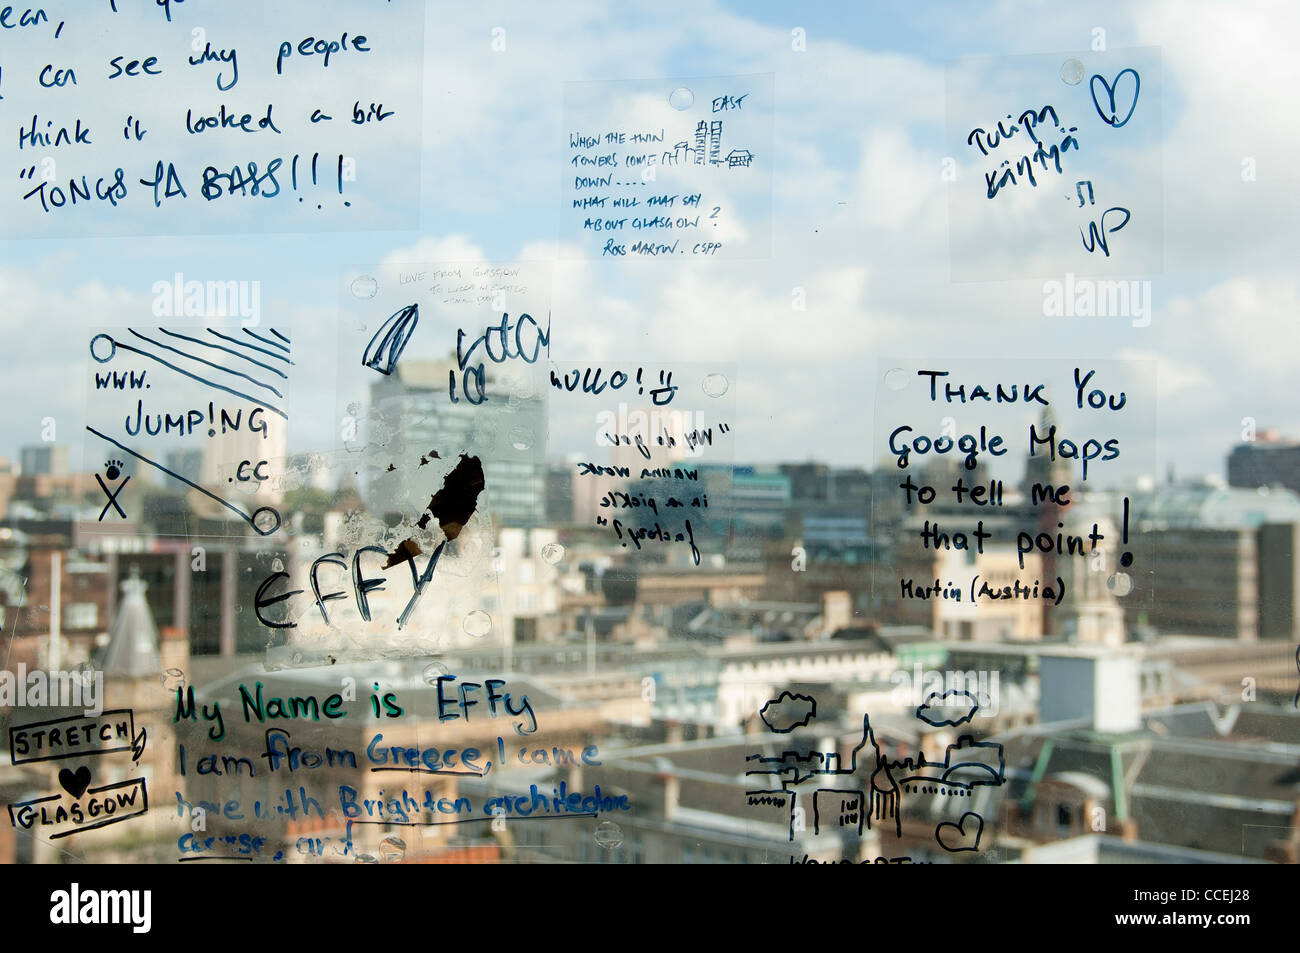 can see why people
think it looked a bit
"TONGS YA BASS!!!
EAST
WHEN THE TWIN
TOWERS COME
DOWN....
WHAT WILL THAT SAY
ABOUT GLASGOW?
ROSS MARTIN. CSPP
Tulipa
käytyä
LOVE FROM GLASGOW
WWW.
JUMP!NG
.CC
HULLO!
"Why do you
wanna work
in a pickle
factory?"
THANK YOU
Google Maps
to tell me
that point!
Martin (Austria)
EFFY
My Name is EFFy
I am from Greece, I came
here with Brighton architecture
course, and
STRETCH
GLASGOW
alamy
Image ID: CCEJ28
www.alamy.com